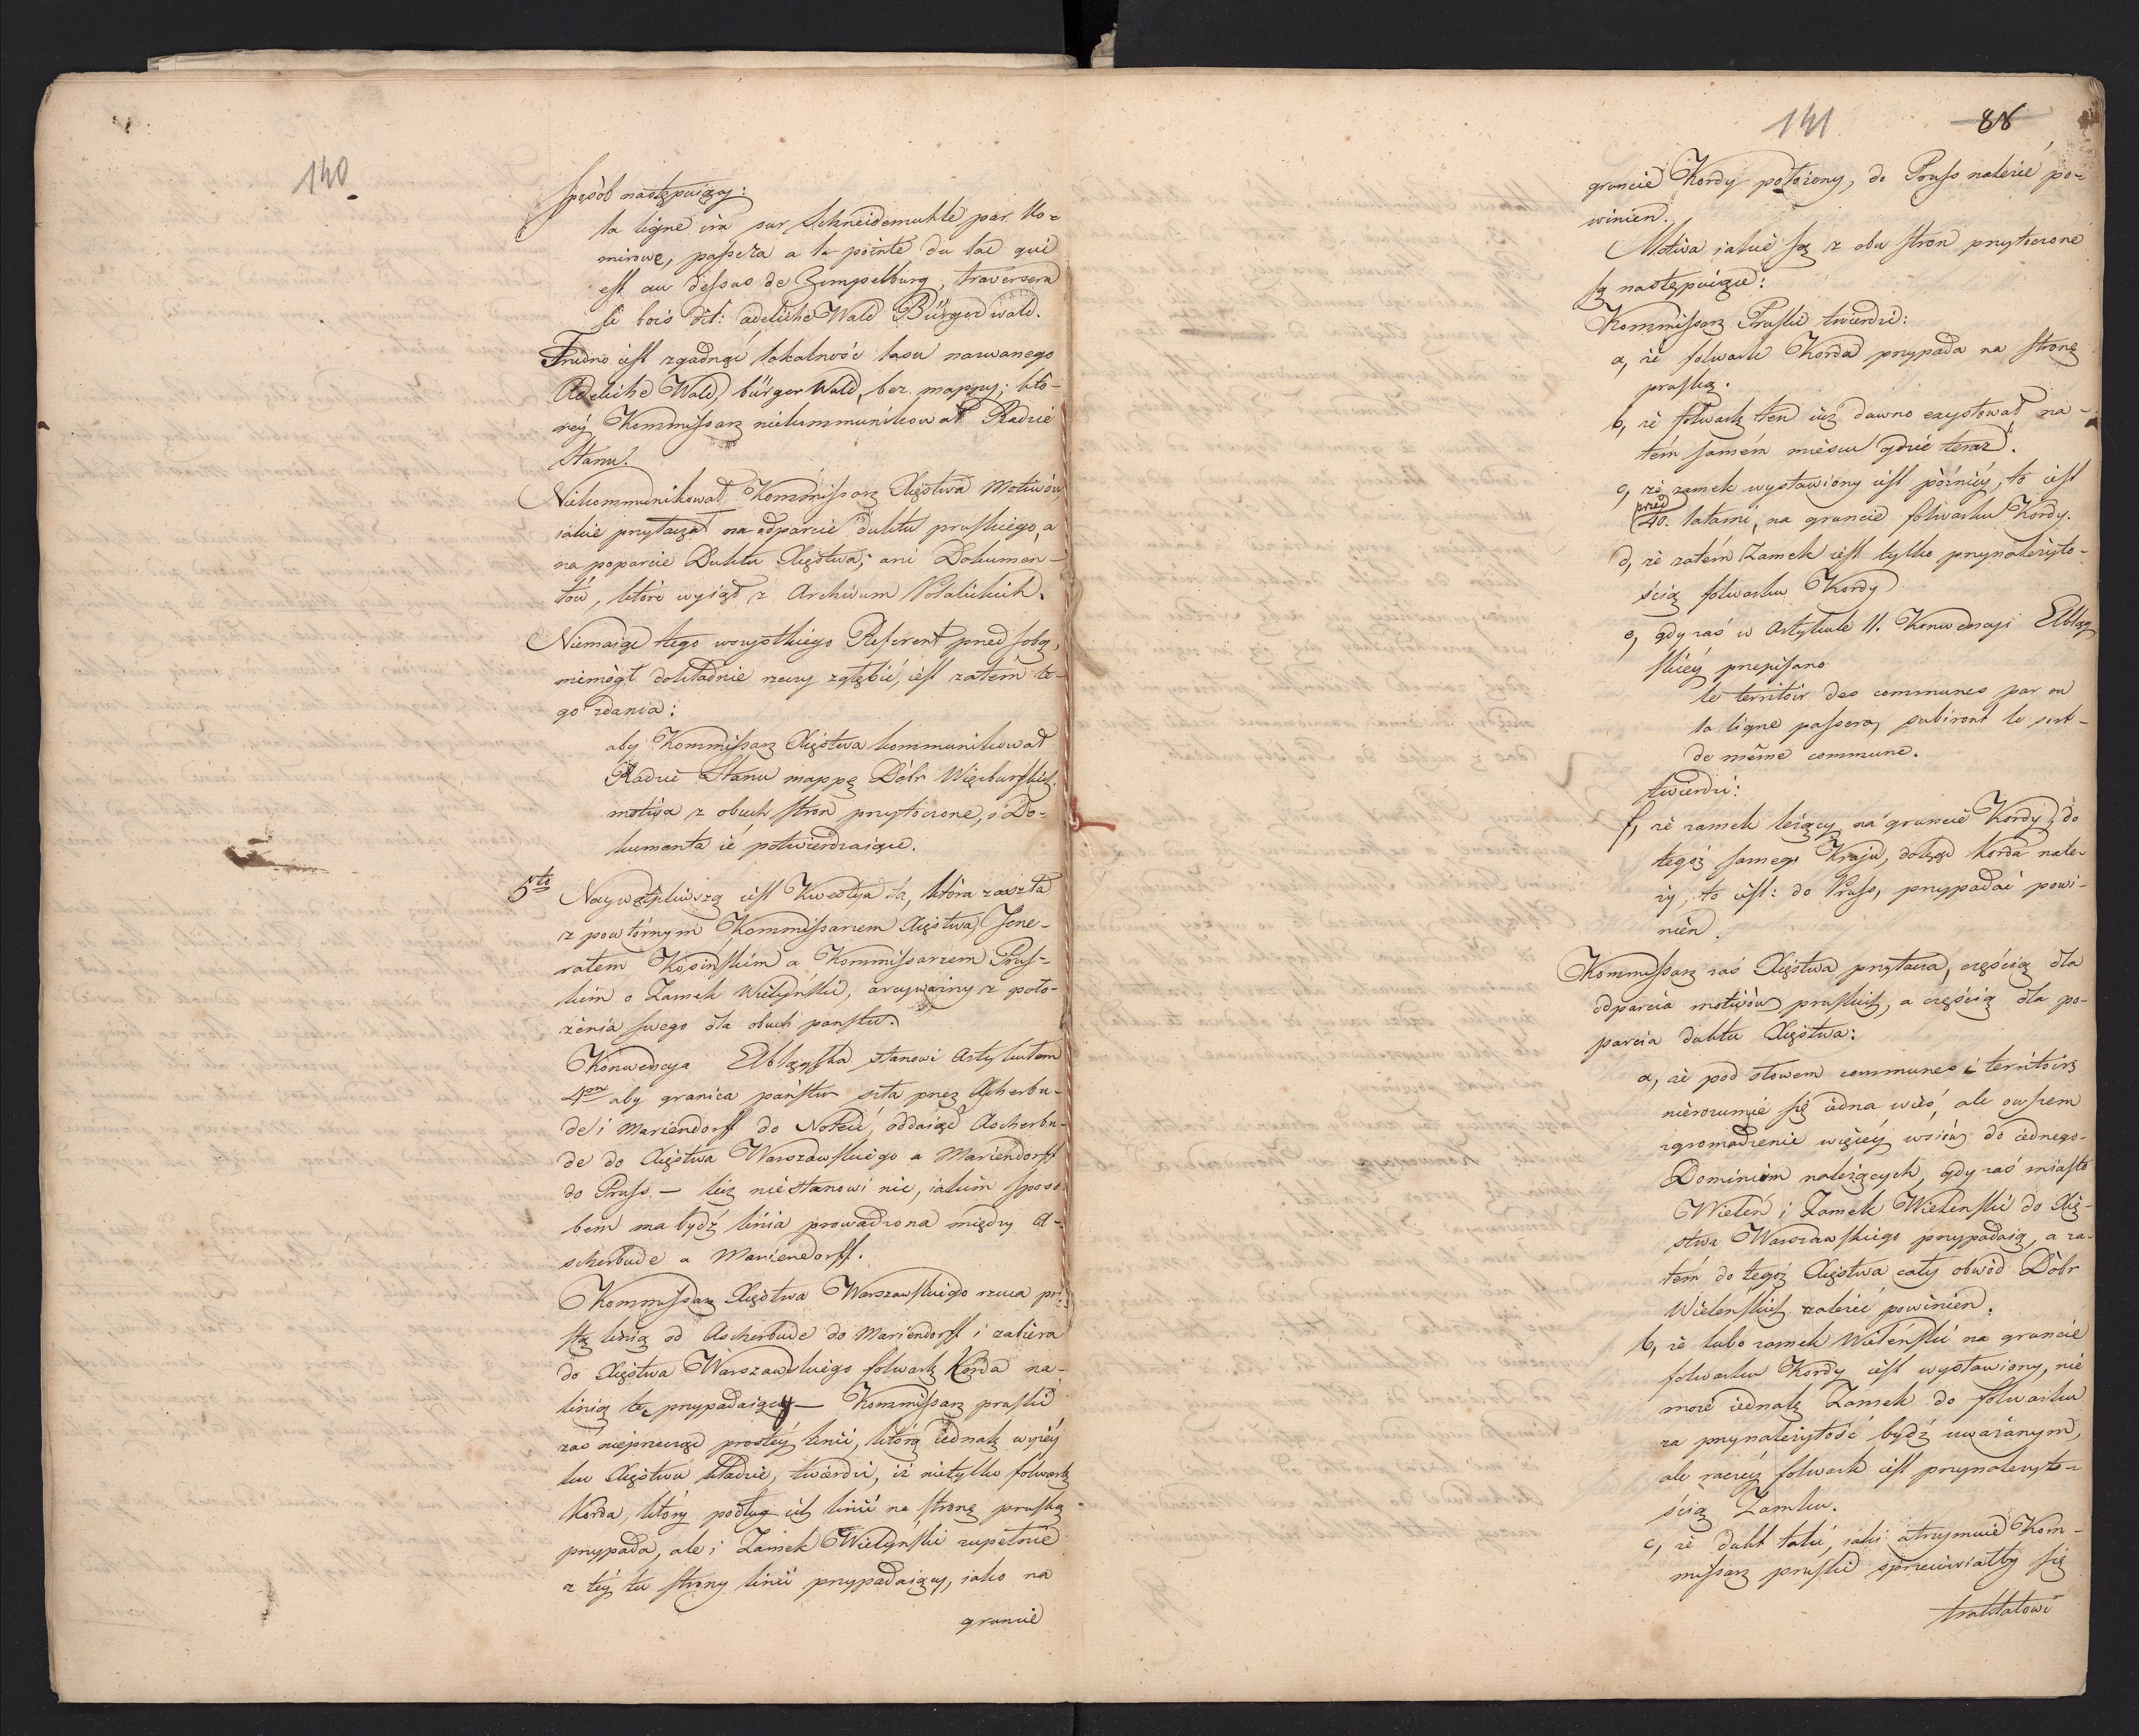 140
sposób następuiący:
la ligne ira sur Schneidemuhle par Ko=
mirowe, passera a la pointe du lac qui
est au dessus de Zempelburg, traversera
le bois dit: adeliche Wald Bürger wald.
Trudno iest zgadnąć lokalność lasu nazwanego
Adeliche Wald, bürger Wald, bez mappy; któ-
rey Kommissarz niekommunikował Radzie
Stanu.
Niekommunikował Kommissarz Xięstwa Motiwów
iakie przytaczał na odparcie duktu pruskiego, a
na poparcie Duktu Xięstwa; ani Dokumen-
tów, które wyiął z Archiwum Potulickich.
Niemaiąc tego wszystkiego Referent przed sobą,
niemógł dokładnie rzeczy zgłębić, iest zatém te-
go zdania:
aby Kommissarz Xięstwa kommunikował
Radzie Stanu mappę Dóbr Więcburskich
motiva z obuch stron przytoczone, i Do=
kumenta ié potwierdzaiące.
5to Naywątpliwszą iest Kwestya ta, która zaszła
z powtórnym Kommissarzem Xięstwa, Jene-
rałem Kosińskim a Kommissarzem Prus=
kim o Zamek Wieliński, arcyważny z poło-
żenia swego dla obuch państw.
Konwencya Elbląska stanowi Artykułem
4ym aby granica państw szła przez Ascherbu-
de i Mariendorff do Noteci, oddaiąc Ascherbu-
de do Xięstwa Warszawskiego a Mariendorff
do Pruss. — lecz niestanowi nic, iakim sposo-
bem ma bydź linia prowadzona między A-
scherbude a Mariendorff.
Kommissarz Xięstwa Warszawskiego rzuca pro-
stą linią od Ascherbude do Mariendorff i zabiera
do Xięstwa Warszawskiego folwark Korda na-
linią tę przypadaiący — Kommissarz pruski
zaś nieprzecząc prostéy linii, którą iednak wyżéy
ku Xięstwu kładzie, twierdzi, iż nietylko folwark
Korda, który podług iéy linii na stronę pruską
przypada, ale i Zamek Wielyński zupełnie
z téy tu strony linii przypadaiący, iako na
gruncie
141 88
gruncie Kordy położony, do Pruss należeć po=
winien.
Motiva iakie są z obu stron przytoczone
są następuiące:
Kommissarz Pruski twierdzi:
a, że folwark Korda przypada na stronę
pruską.
b, że folwark ten iuż dawno exystował na-
tém samém mieyscu gdzie teraz.
c, że zamek wystawiony iest późniéy, to iest
przed
40. latami, na gruncie folwarku Kordy.
d, że zatém Zamek iest tylko przynależyto-
ścią folwarku Kordy
e, gdy zaś w Artykule 11. Konwencyi Elbląg
skiéy przepisano
le territoir des communes par ou
la ligne passera, subiront le sort-
de même commune.
twierdzi:
f, że zamek leżący na gruncie Kordy, do
tegóż samego Kraju, dokąd Korda nale-
ży, to iest: do Pruss, przypadać powi-
nien.
Kommissarz zaś Xięstwa przytacza, częścią dla
odparcia motiwów pruskich, a częścią dla po-
parcia duktu Xięstwa:
a, że pod słowem communes i territoirs
nierozumie się iedna wieś, ale owszem
zgromadzenie więcéy wsiów do iednego-
Dominium należących, gdy zaś miasto
Wieleń i Zamek Wieleński do Xię-
stwa Warszawskiego przypadaią, a za-
tém do tegóż Xięstwa cały obwód Dóbr
Wieleńskich należeć powinien.
b, że lubo zamek Wieleński na gruncie
folwarku Kordy iest wystawiony, nie
może iednak Zamek do folwarku
za przynależytość bydź uważanym,
ale raczéy folwark iest przynależyto-
ścią Zamku.
c, że dukt taki, iaki utrzymuie Kom-
missarz pruski sprzeciwiałby się
traktatowi